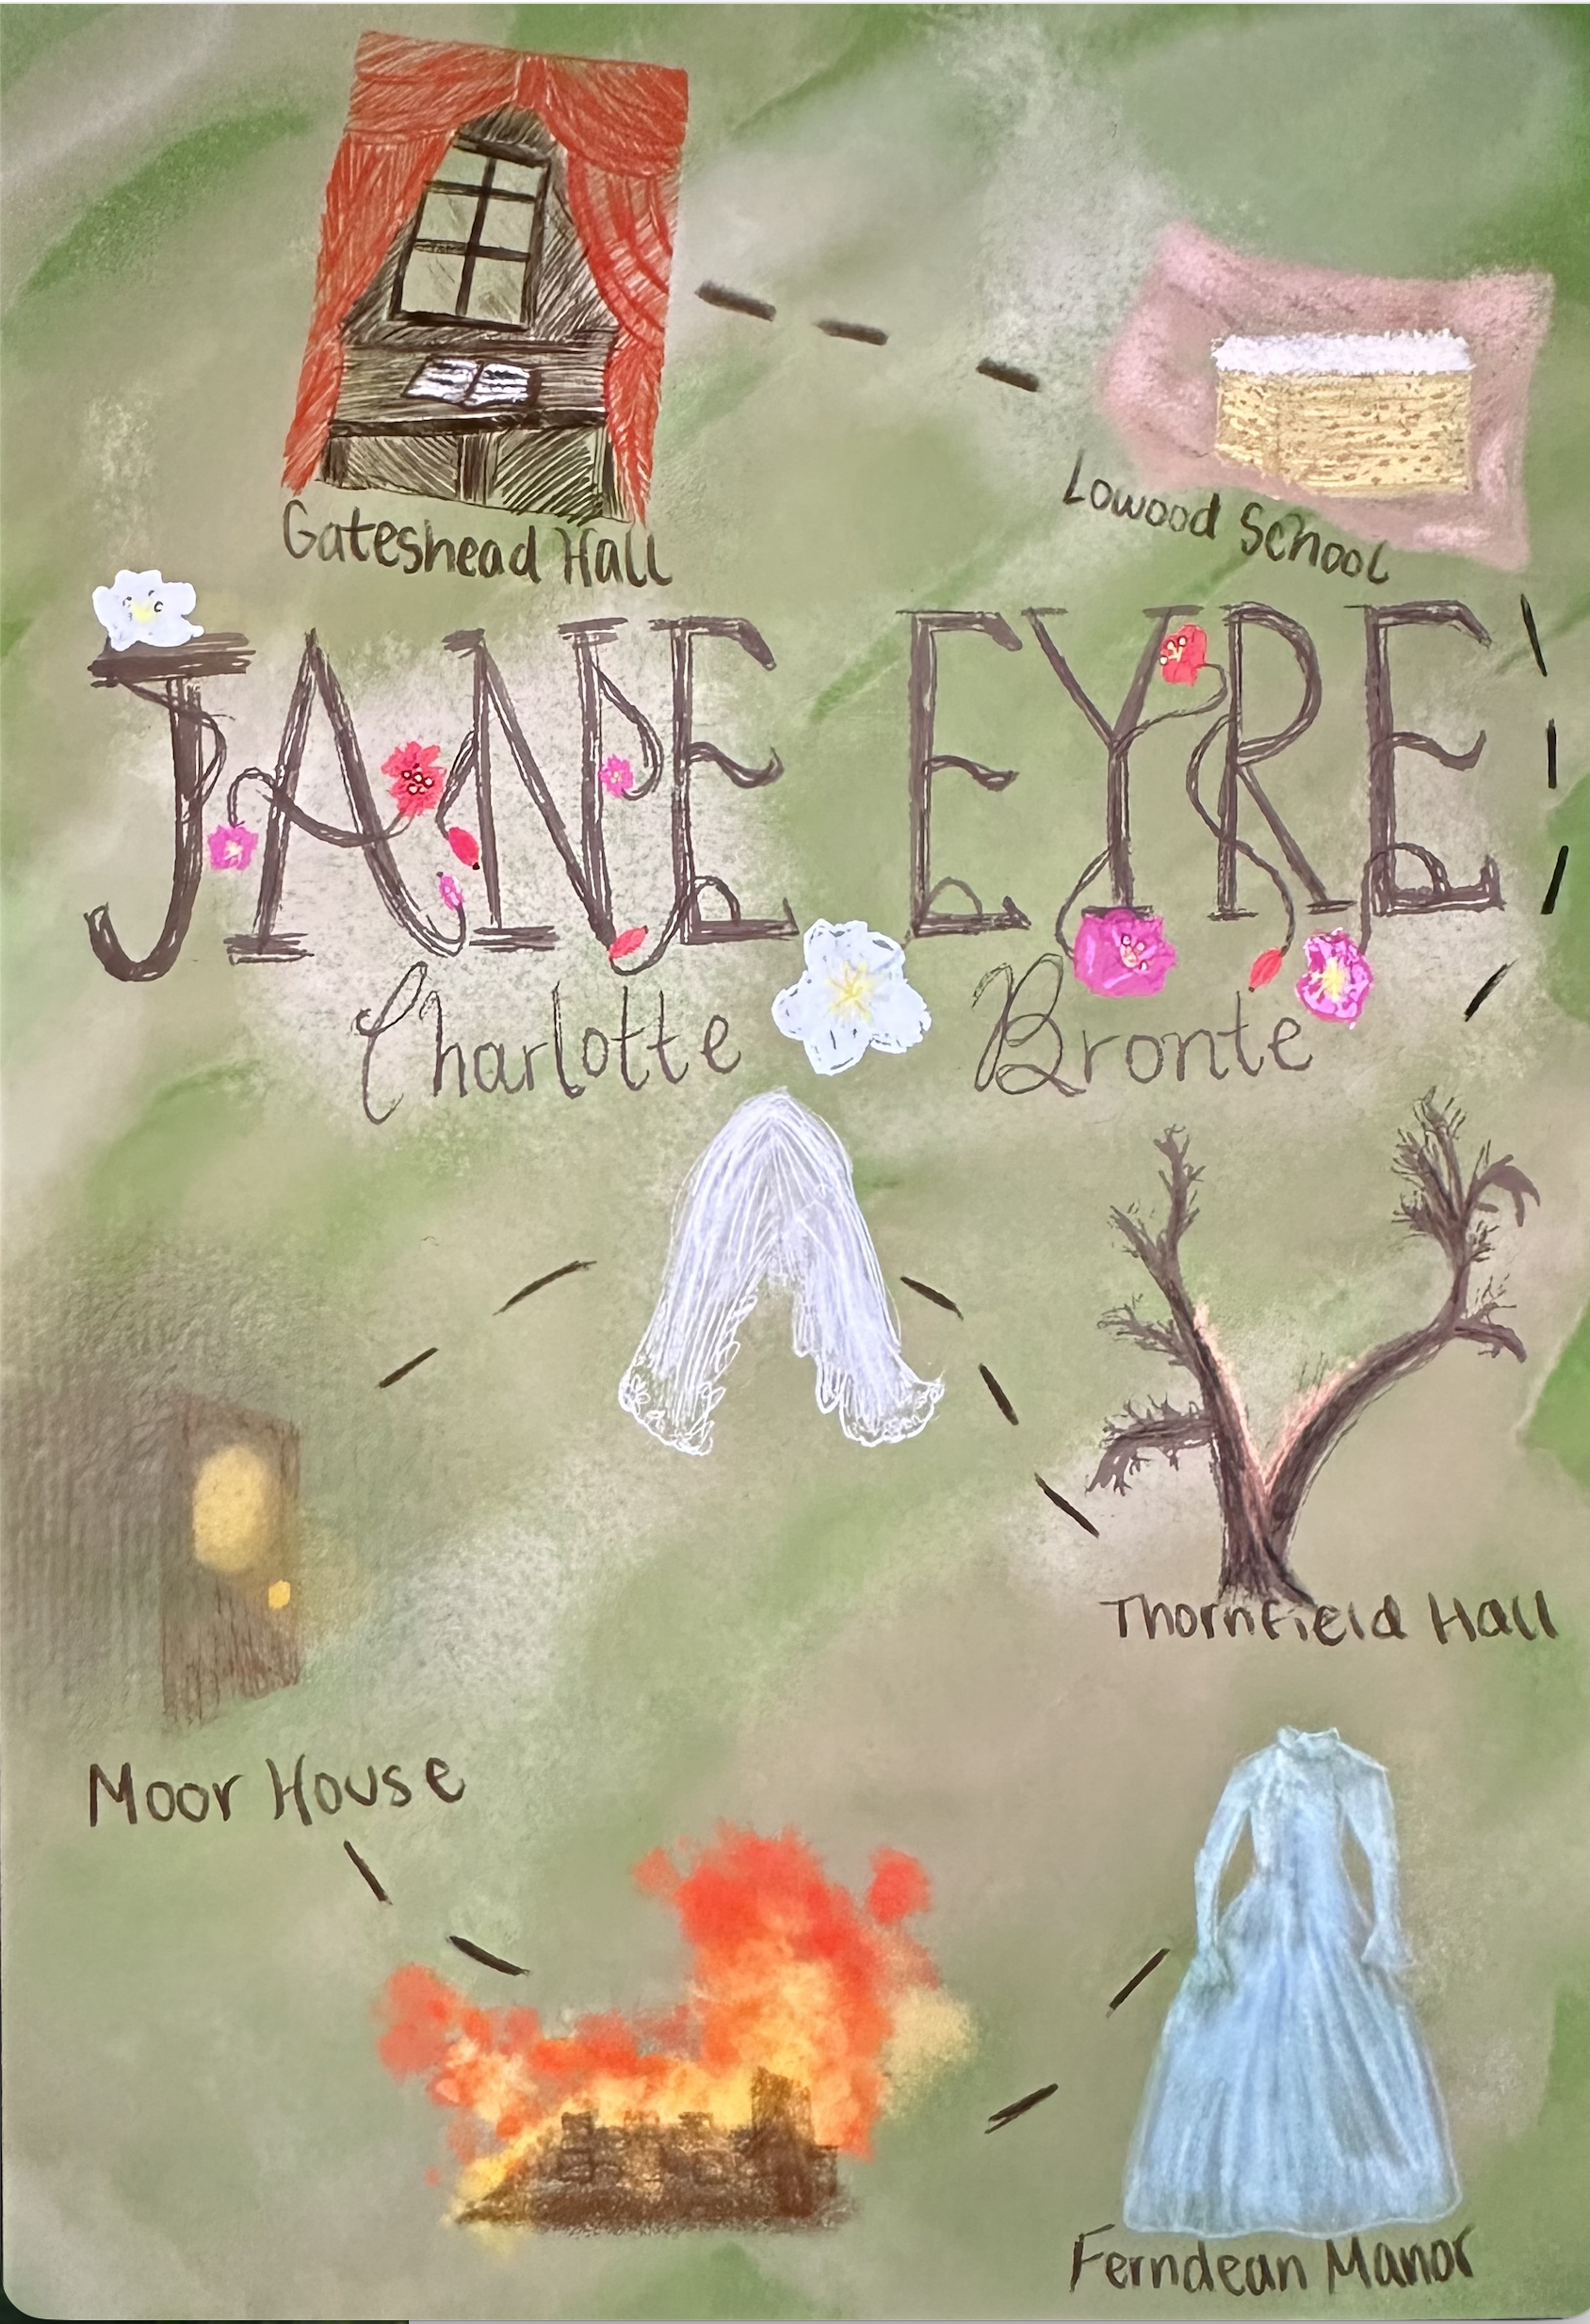 Gateshead Hall
Lowood School
JANE EYRE
Charlotte Bronte
Thornfield Hall
Moor House
Ferndean Manor